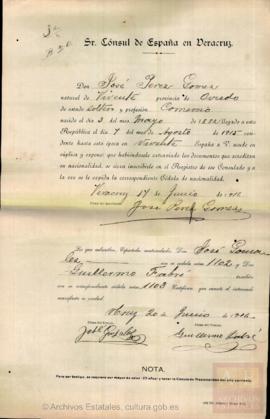 Sr. Cónsul de España en Veracruz.
Don José Perez Gomez
natural de Vivente provincia de Oviedo
de estado soltero y profesión Comercio
nacido el día 3 del mes Mayo de 1892 llegado a esta
República el día 7 del mes de Agosto de 1915 resi-
dente hasta esta época en Vivente España a V. acude en
súplica y expone: que habiéndosele extraviado los documentos que acreditan
su nacionalidad, se sirva inscribirle en el Registro de ese Consulado y a
la vez se le expida la correspondiente Cédula de nacionalidad.
Veracruz 17 de Junio de 1916
José Perez Gomez
Los que suscriben, Españoles matriculados: Don José
con su cédula núm. 1102, y Don
Guillermo Fabré
con su correspondiente cédula núm. 1103 Certifican que cuanto el interesado
manifiesta es verdad.
Veracruz 20 de Junio de 1916
Guillermo Fabré
NOTA.
© Archivos Estatales, cultura.gob.es